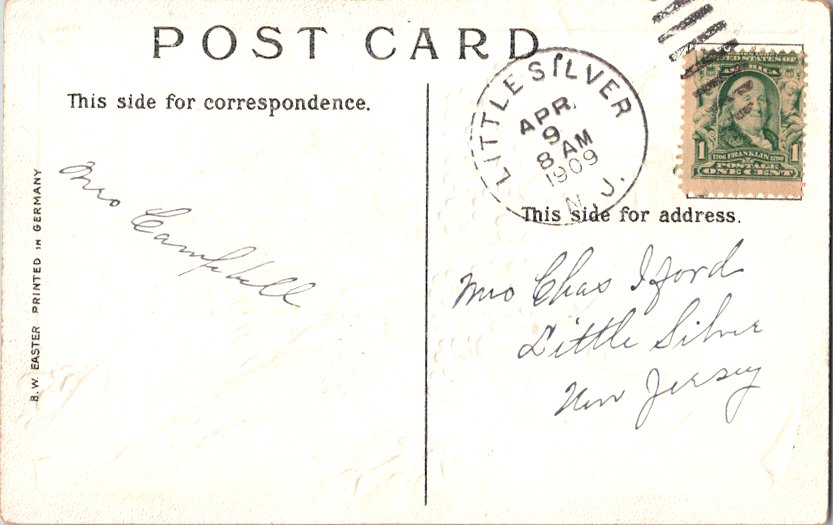 POST CARD
This side for correspondence.
LITTLE SILVER
APR.
9
8 AM
1909
N. J.
UNITED STATES OF
AMERICA
1 1706 FRANKLIN 1790 1
POSTAGE
ONE CENT
This side for address.
Mrs Campbell
Mrs Chas Iford
Little Silver
New Jersey
B. W. EASTER PRINTED IN GERMANY